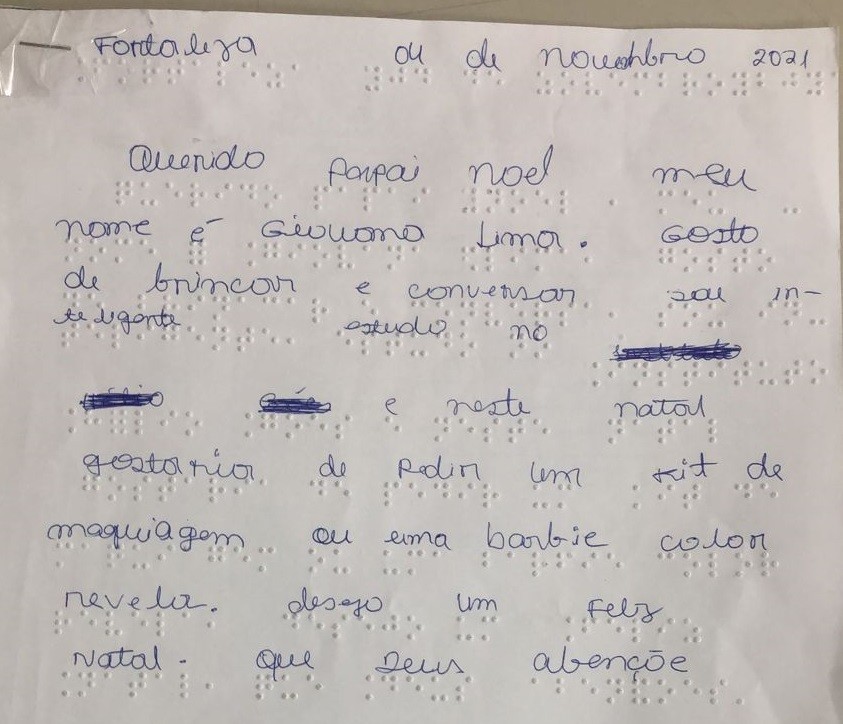 Fortaleza 04 de novembro 2021
Querido papai noel meu
nome é Giovana Lima. Gosto
de brincar e conversar sou in-
teligente estudo no
e neste natal
gostaria de pedir um kit de
maquiagem ou uma barbie color
revela. desejo um Feliz
Natal. que Deus abençõe